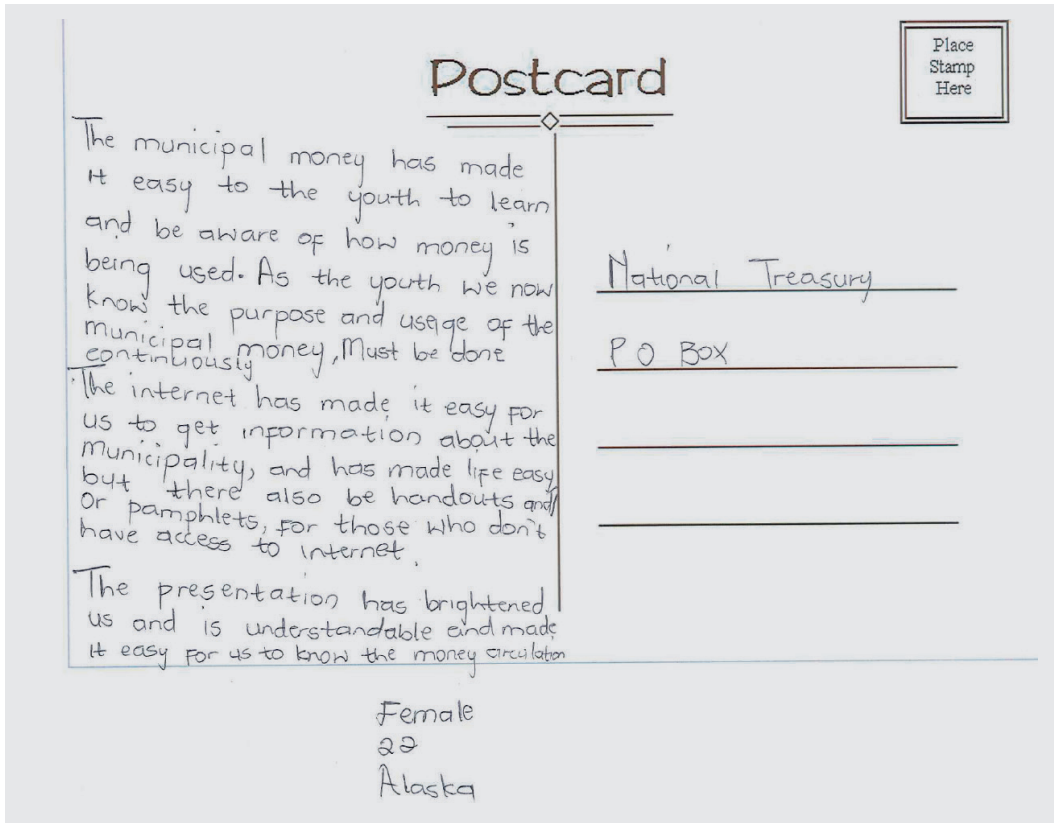 Postcard
Place
Stamp
Here
The municipal money has made
it easy to the youth to learn
and be aware of how money is
being used. As the youth we now
know the purpose and usage of the
municipal money, Must be done
continuously
The internet has made it easy for
us to get information about the
municipality, and has made life easy
but there also be handouts and
Or pamphlets, for those who don't
have access to internet.
The presentation has brightened
us and is understandable and made
it easy for us to know the money circulation
National Treasury
P O Box
Female
22
Alaska